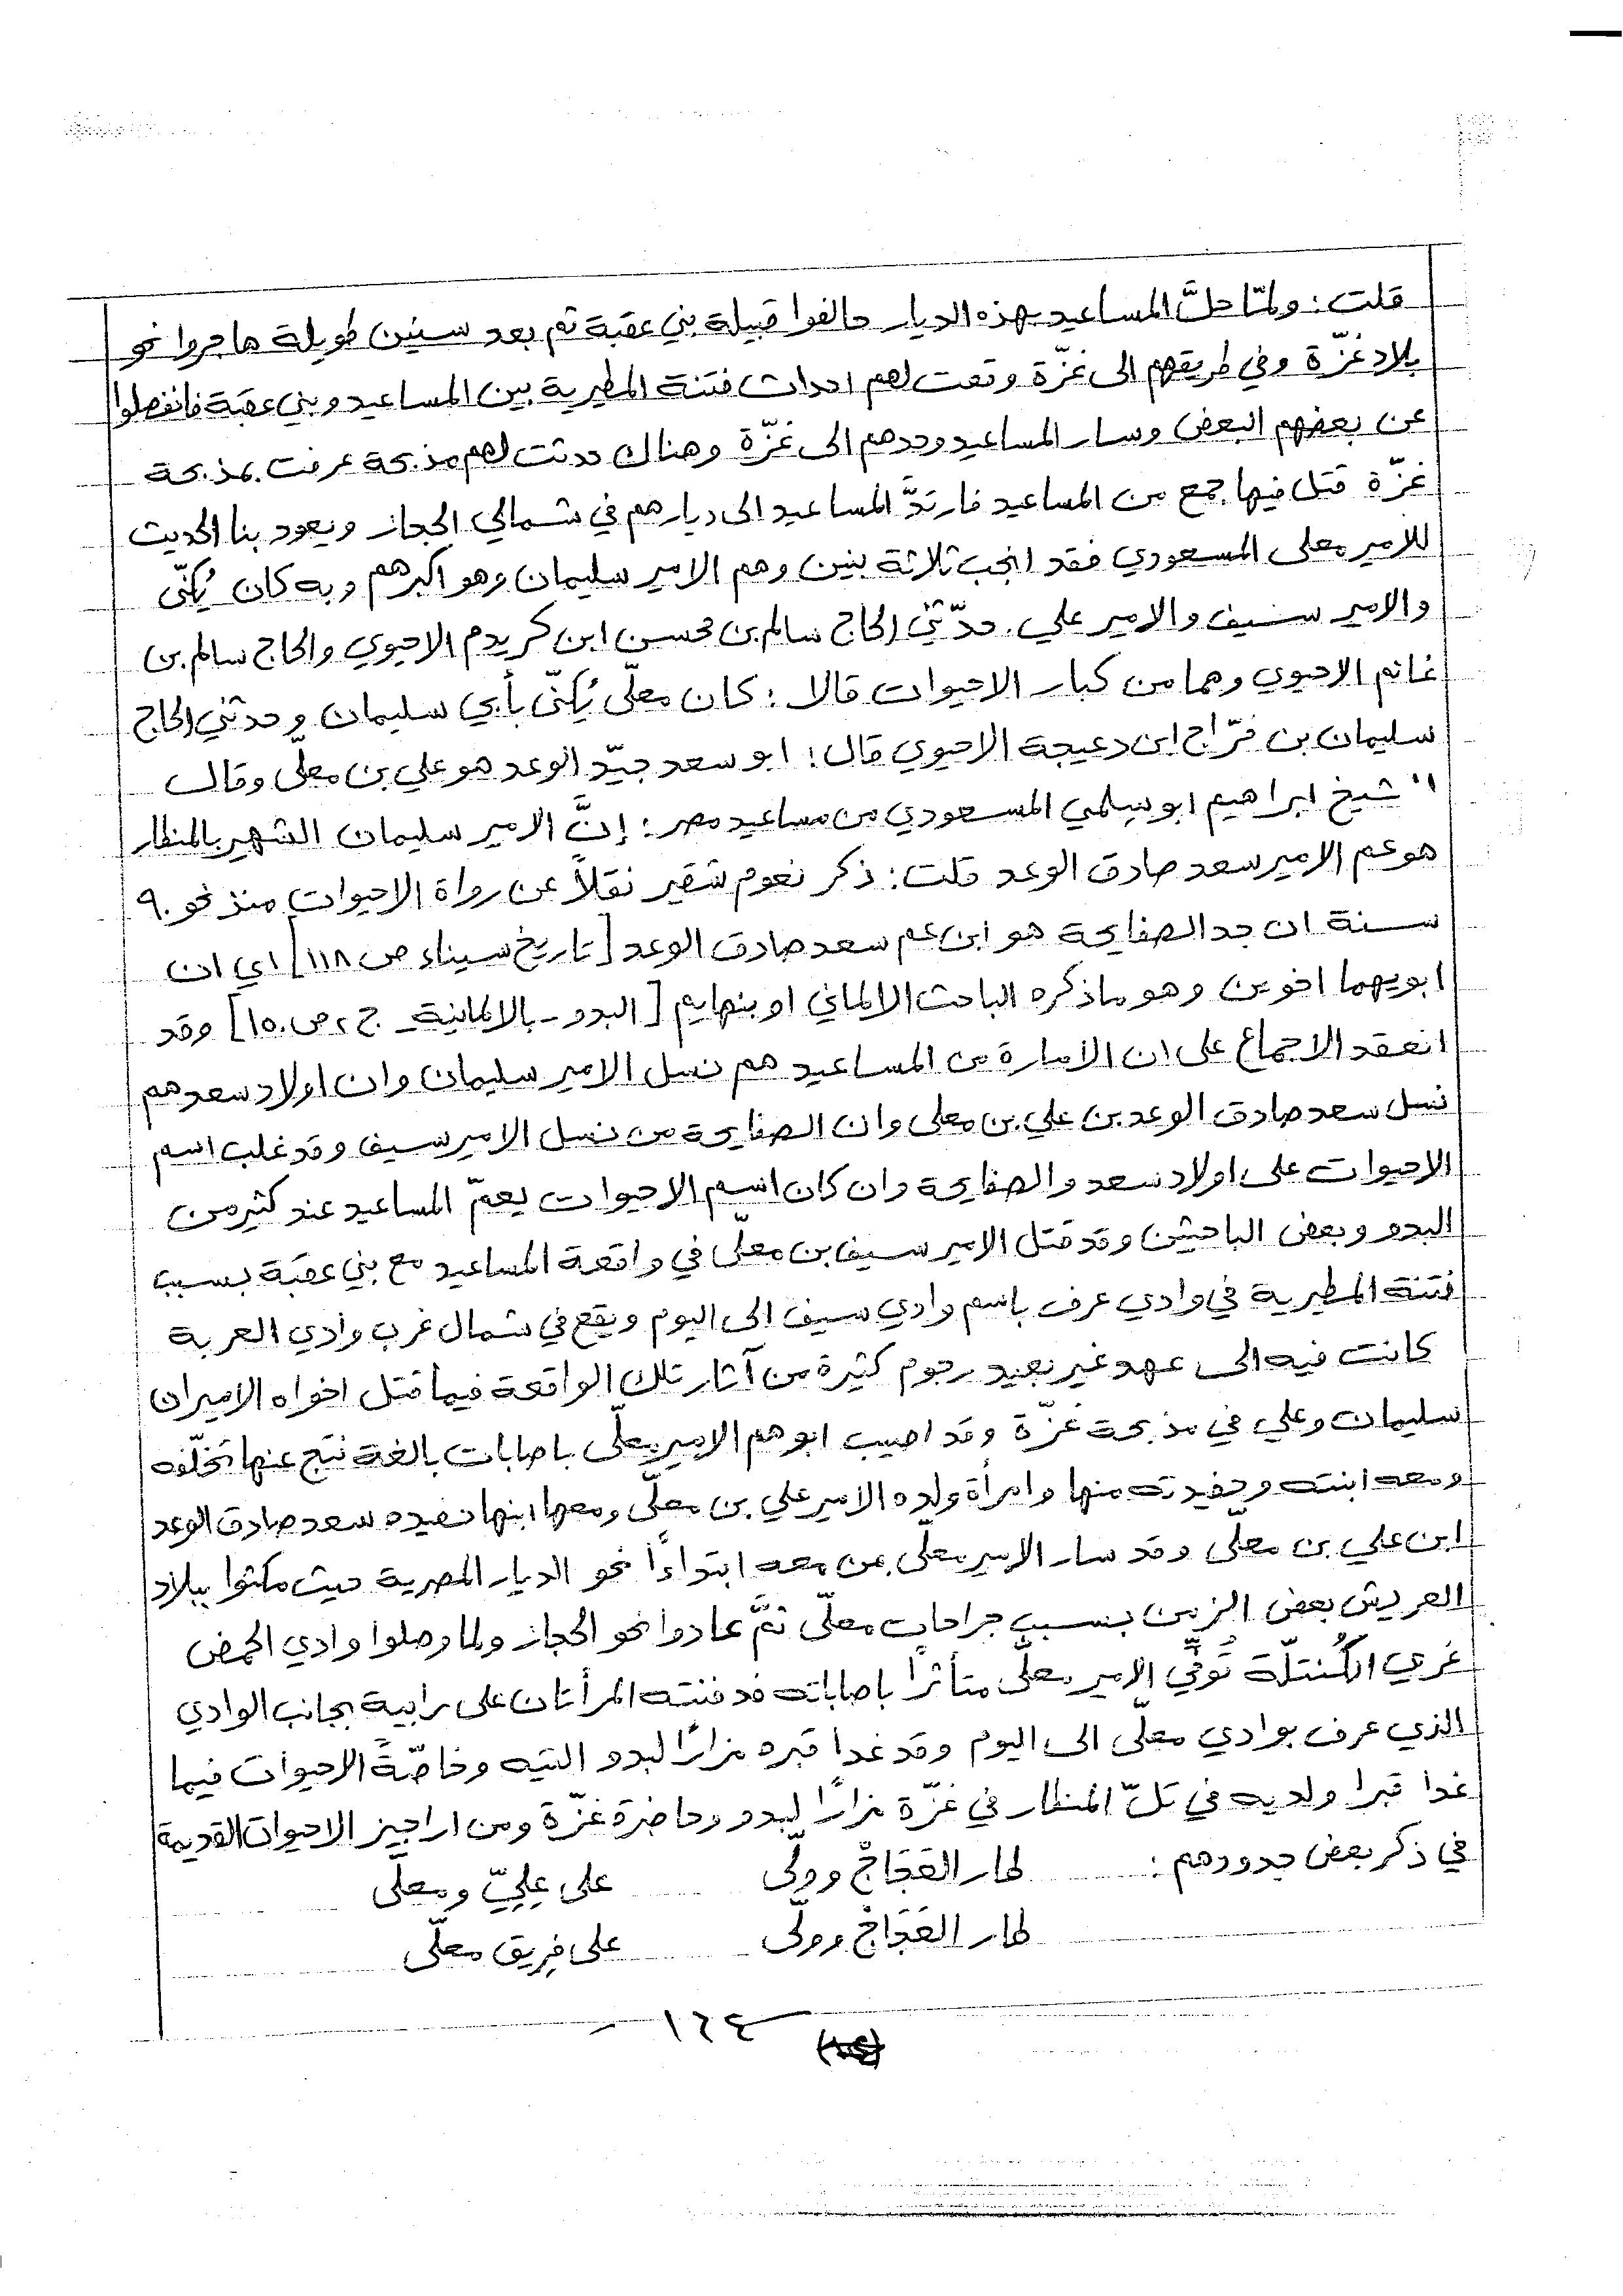 قلت: ولمّا حلَّ المساعيد بهذه الديار حالفوا قبيلة بني عقبة ثم بعد سنين طويلة هاجروا نحو
بلاد غزّة وفي طريقهم الى غزّة وقعت لهم احداث فتنة المطيرية بين المساعيد وبني عقبة فانفصلوا
عن بعضهم البعض وسار المساعيد وحدهم الى غزّة وهناك حدثت لهم مذبحة عرفت بمذبحة
غزّة قتل فيها جمع من المساعيد فارتدَّ المساعيد الى ديارهم في شمالي الحجاز ويعود بنا الحديث
للامير معلى المسعودي فقد انجب ثلاثة بنين وهم الامير سليمان وهو اكبرهم وبه كان يُكنّى
والامير سيف والامير علي. حدّثني الحاج سالم بن محسن ابن كريدم الاحيوي والحاج سالم بن
غانم الاحيوي وهما من كبار الاحيوات قالا: كان معلّى يُكنّى بأبي سليمان وحدثني الحاج
سليمان بن فرّاج ابن دعيجة الاحيوي قال: ابو سعد جيّد الوعد هو علي بن معلّى وقال
الشيخ ابراهيم ابو سلمي المسعودي من مساعيد مصر: إنَّ الامير سليمان الشهير بالمنطار
هو عم الامير سعد صادق الوعد قلت: ذكر نعوم شقير نقلاً عن رواة الاحيوات منذ نحو ٩٠
سنة ان جد الصفايحة هو ابن عم سعد صادق الوعد [تاريخ سيناء ص ١١٨] اي ان
ابويهما اخوين وهو ما ذكره الباحث الالماني اوبنهايم [البدو - بالالمانية - ج ٢ ص ١٥٠] وقد
انعقد الاجماع على ان الامارة من المساعيد هم نسل الامير سليمان وان اولاد سعد هم
نسل سعد صادق الوعد بن علي بن معلى وان الصفايحة من نسل الامير سيف وقد غلب اسم
الاحيوات على اولاد سعد والصفايحة وان كان اسم الاحيوات يعمّ المساعيد عند كثير من
البدو وبعض الباحثين وقد قتل الامير سيف بن معلّى في واقعة المساعيد مع بني عقبة بسبب
فتنة المطيرية في وادي عرف باسم وادي سيف الى اليوم ويقع في شمال غرب وادي العربة
كانت فيه الى عهد غير بعيد رجوم كثيرة من آثار تلك الواقعة فيما قتل اخواه الاميران
سليمان وعلي في مذبحة غزّة وقد اصيب ابوهم الامير معلّى باصابات بالغة نتج عنها تخلّفه
ومعه ابنته وحفيدته منها وامرأة ولده الامير علي بن معلّى ومعها ابنها حفيده سعد صادق الوعد
ابن علي بن معلّى وقد سار الامير معلّى بمن معه ابتداءًا نحو الديار المصرية حيث مكثوا ببلاد
العريش بعض الزمن بسبب جراحات معلّى ثمَّ عادوا نحو الحجاز ولما وصلوا وادي الحمض
غربي الكُنتلّة تُوفّي الامير معلّى متأثرًا باصاباته فدفنته المرأتان على رابية بجانب الوادي
الذي عرف بوادي معلّى الى اليوم وقد غدا قبره مزارًا لبدو التيه وخاصّةً الاحيوات فيما
غدا قبرا ولديه في تلّ المنطار في غزّة مزارًا لبدو وحاضرة غزّة ومن اراجيز الاحيوات القديمة
في ذكر بعض جدودهم: طار العَجَاجْ وولّى على عِليّ ومعلّى
طار العَجَاجْ وولّى على فِريق معلّى
- ١٦٤ -